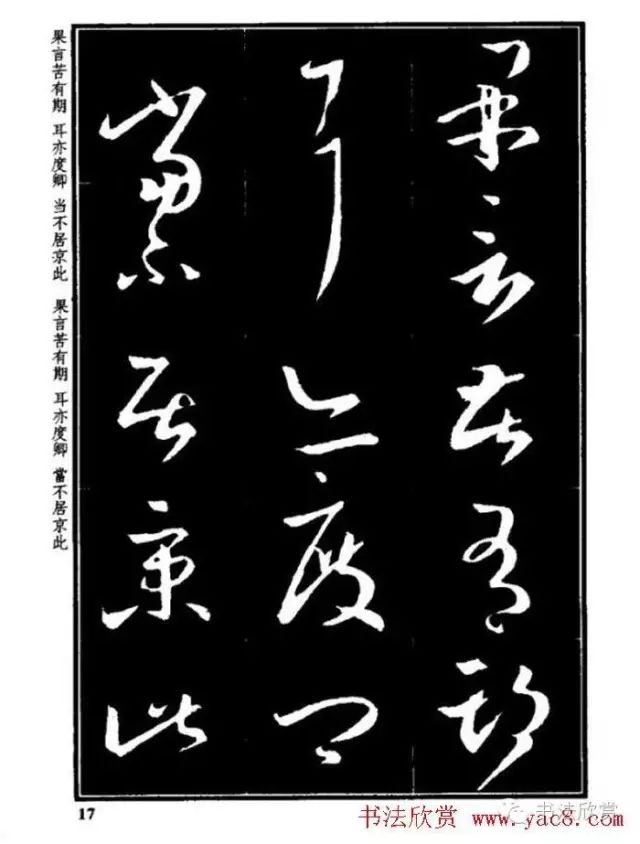 果言苦有期
耳亦度卿
当不居京此
果言苦有期 耳亦度卿 当不居京此 果言苦有期 耳亦度卿 當不居京此
17
书法欣赏 www.yac8.com
书法欣赏